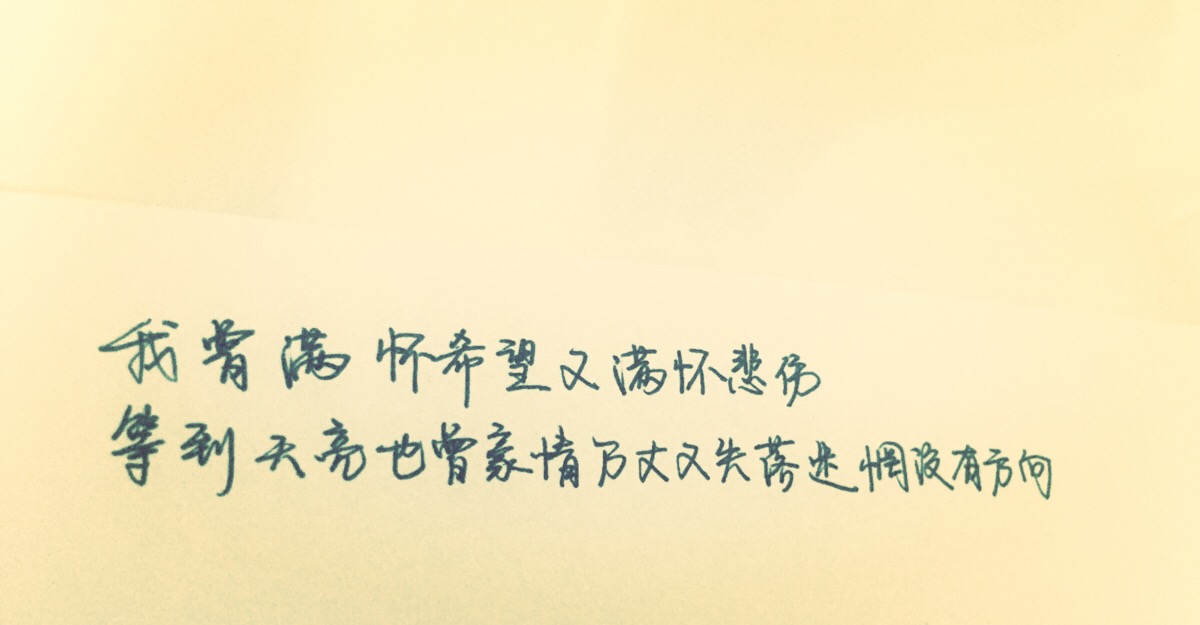 我曾满怀希望又满怀悲伤
等到天亮也曾豪情万丈又失落迷惘没有方向